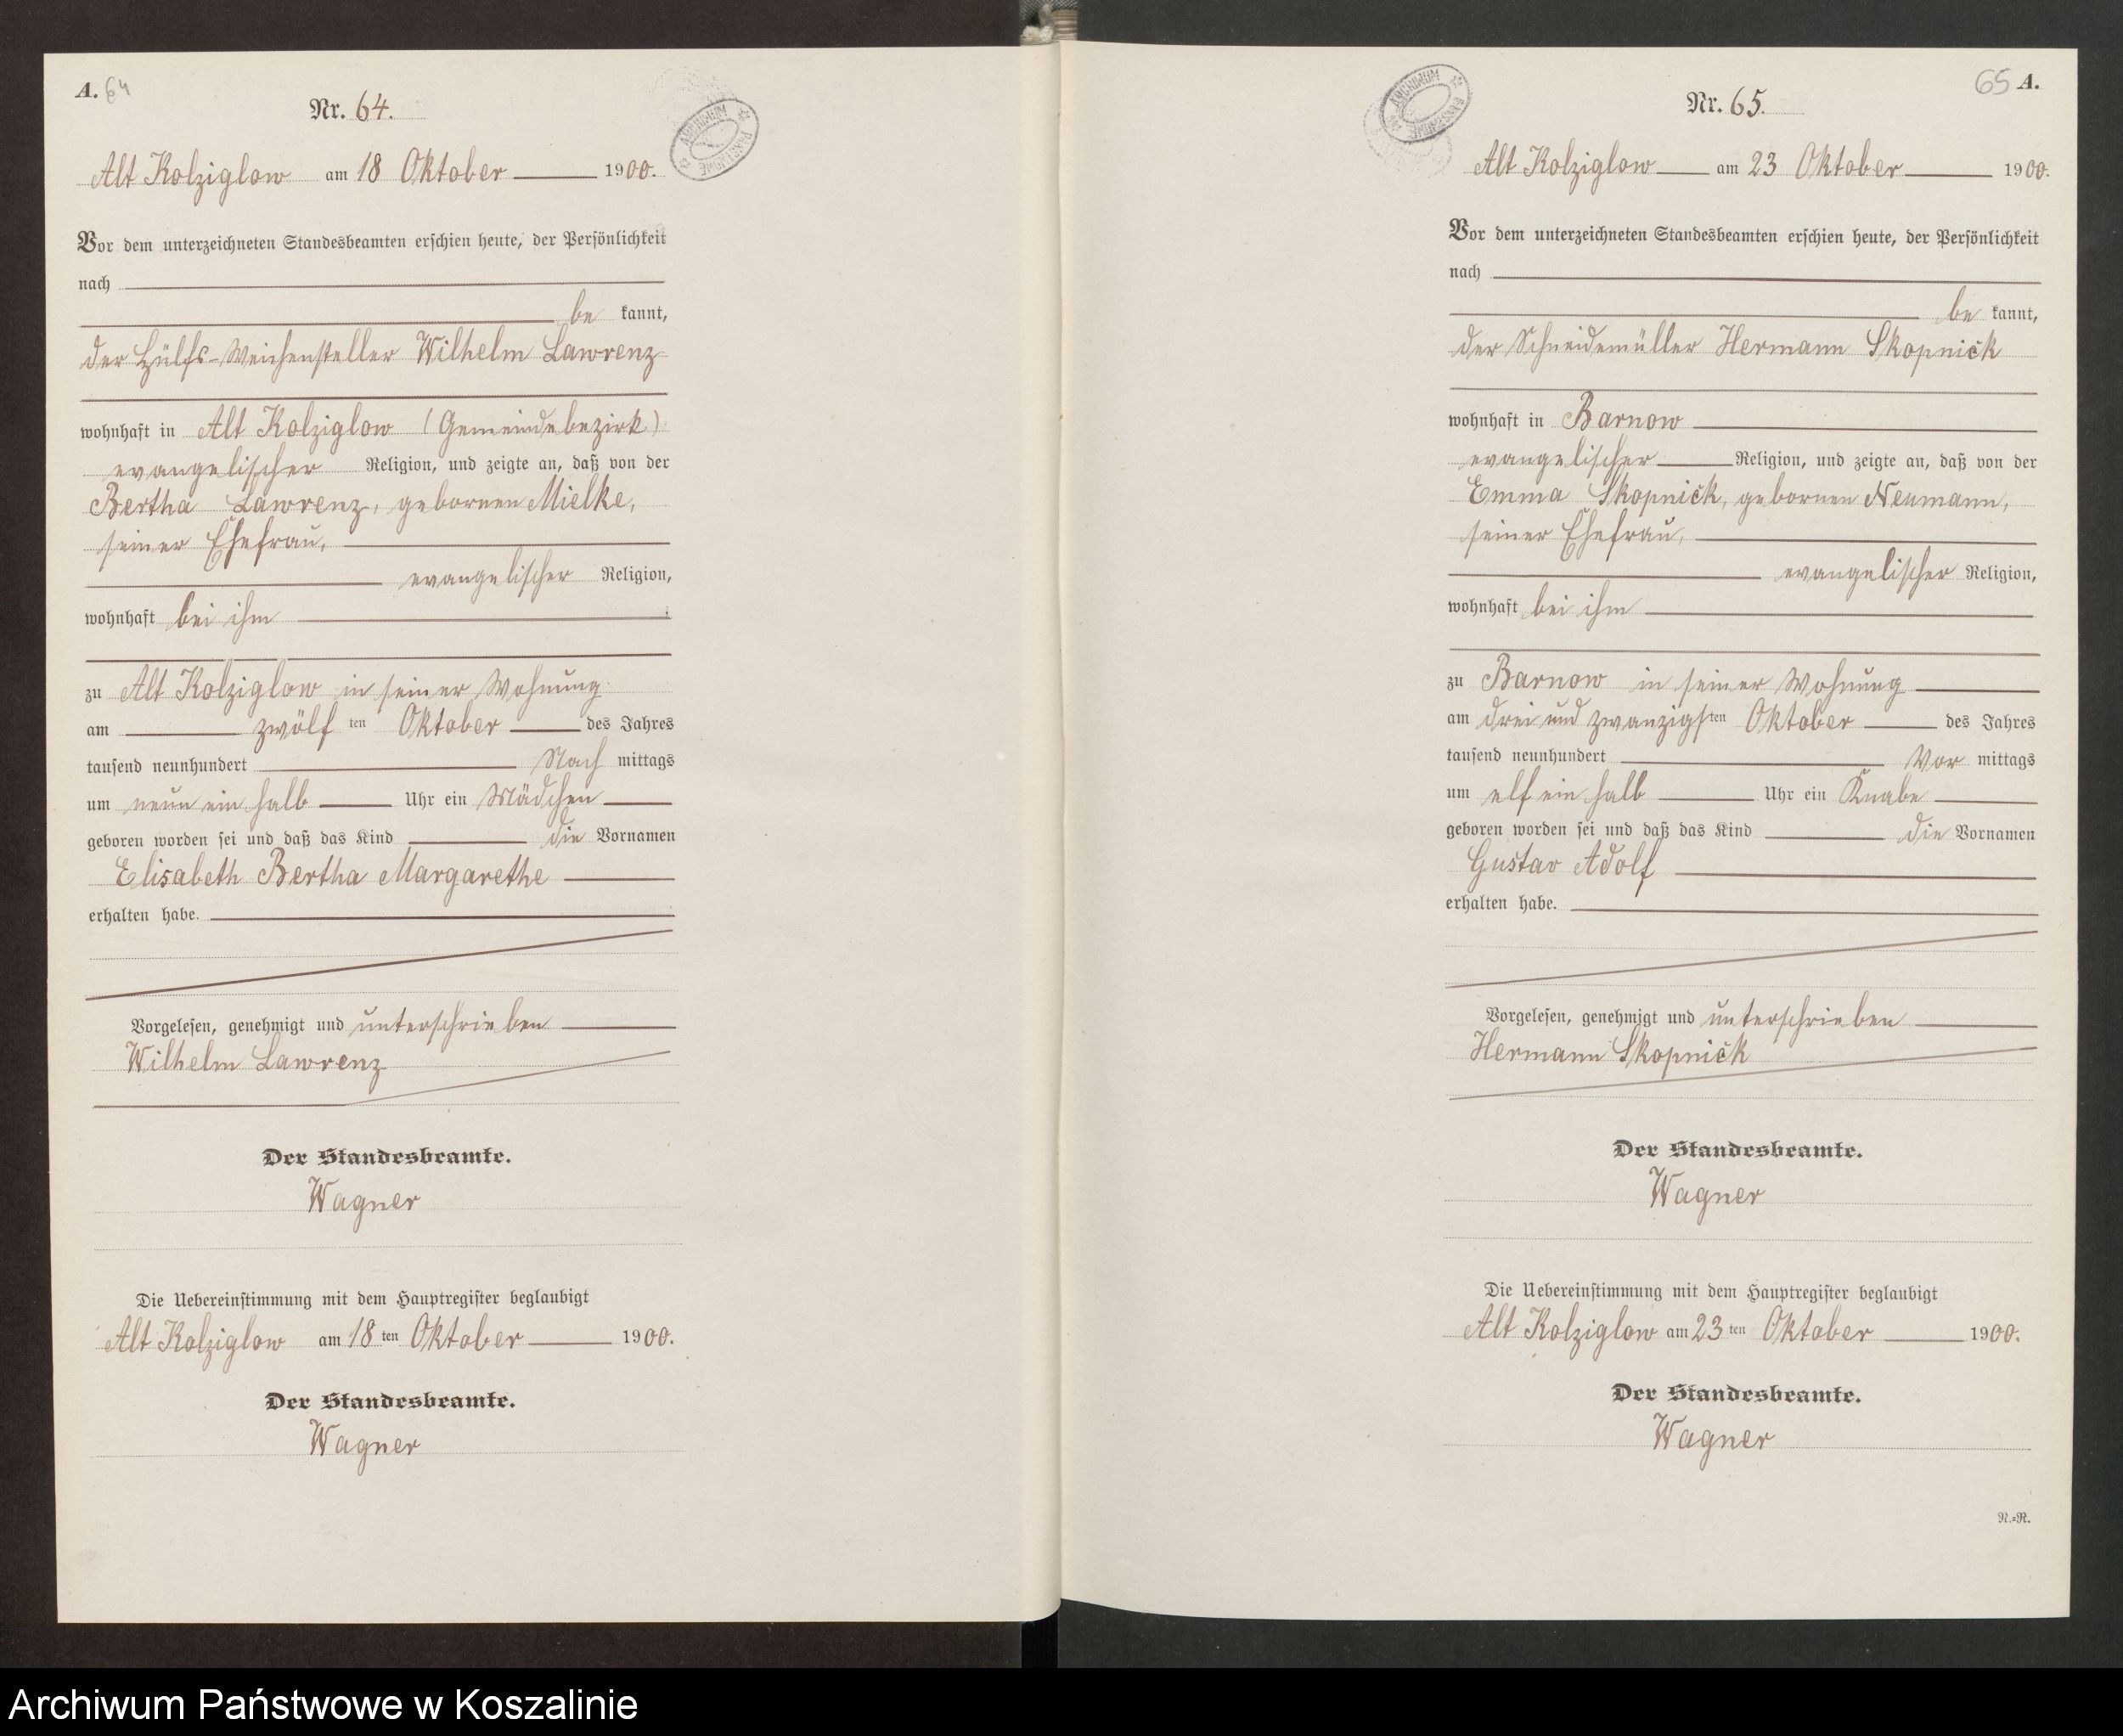 A. 64
Nr. 64.
Alt Kolziglow am 18 Oktober 1900.
Vor dem unterzeichneten Standesbeamten erschien heute, der Persönlichkeit
nach
be kannt,
der Hülfs-Weichensteller Wilhelm Lawrenz
wohnhaft in Alt Kolziglow (Gemeindebezirk)
evangelischer Religion, und zeigte an, daß von der
Bertha Lawrenz, gebornen Mielke,
seiner Ehefrau,
evangelischer Religion,
wohnhaft bei ihm
zu Alt Kolziglow in seiner Wohnung
am zwölf ten Oktober des Jahres
tausend neunhundert Nach mittags
um neun ein halb Uhr ein Mädchen
geboren worden sei und daß das Kind die Vornamen
Elisabeth Bertha Margarethe
erhalten habe.
Vorgelesen, genehmigt und unterschrieben
Wilhelm Lawrenz
Der Standesbeamte.
Wagner
Die Uebereinstimmung mit dem Hauptregister beglaubigt
Alt Kolziglow am 18 ten Oktober 1900.
Der Standesbeamte.
Wagner
65 A.
Nr. 65.
Alt Kolziglow am 23 Oktober 1900.
Vor dem unterzeichneten Standesbeamten erschien heute, der Persönlichkeit
nach
be kannt,
der Schneidemüller Hermann Skopnick
wohnhaft in Barnow
evangelischer Religion, und zeigte an, daß von der
Emma Skopnick, gebornen Neumann,
seiner Ehefrau,
evangelischer Religion,
wohnhaft bei ihm
zu Barnow in seiner Wohnung
am drei und zwanzigs ten Oktober des Jahres
tausend neunhundert Vor mittags
um elf ein halb Uhr ein Knabe
geboren worden sei und daß das Kind die Vornamen
Gustav Adolf
erhalten habe.
Vorgelesen, genehmigt und unterschrieben
Hermann Skopnick
Der Standesbeamte.
Wagner
Die Uebereinstimmung mit dem Hauptregister beglaubigt
Alt Kolziglow am 23 ten Oktober 1900.
Der Standesbeamte.
Wagner
N.=R.
Archiwum Państwowe w Koszalinie